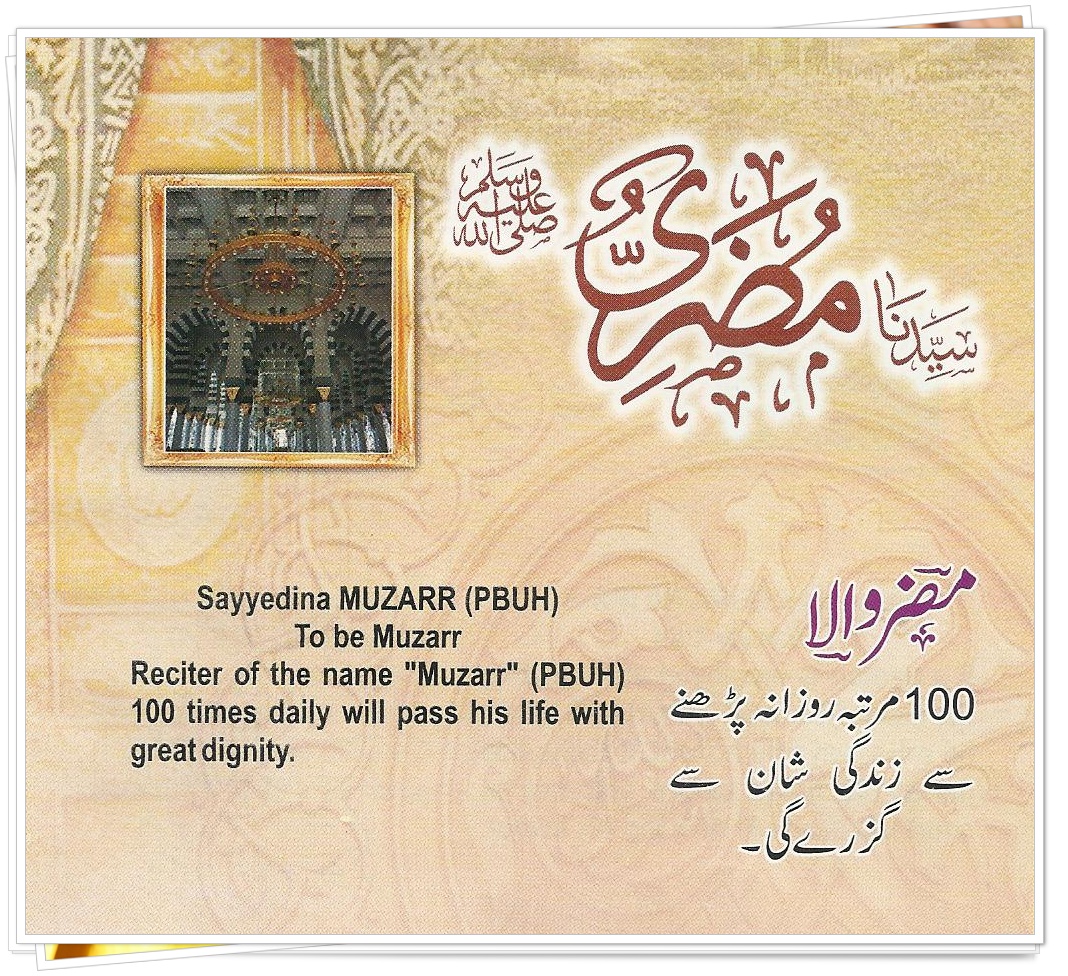 سَيِّدُنَا مُضَرِيٌّ صلى الله عليه وسلم
Sayyedina MUZARR (PBUH)
To be Muzarr
Reciter of the name "Muzarr" (PBUH)
100 times daily will pass his life with
great dignity.
مضر والا
100 مرتبہ روزانہ پڑھنے
سے زندگی شان سے
گزرے گی۔